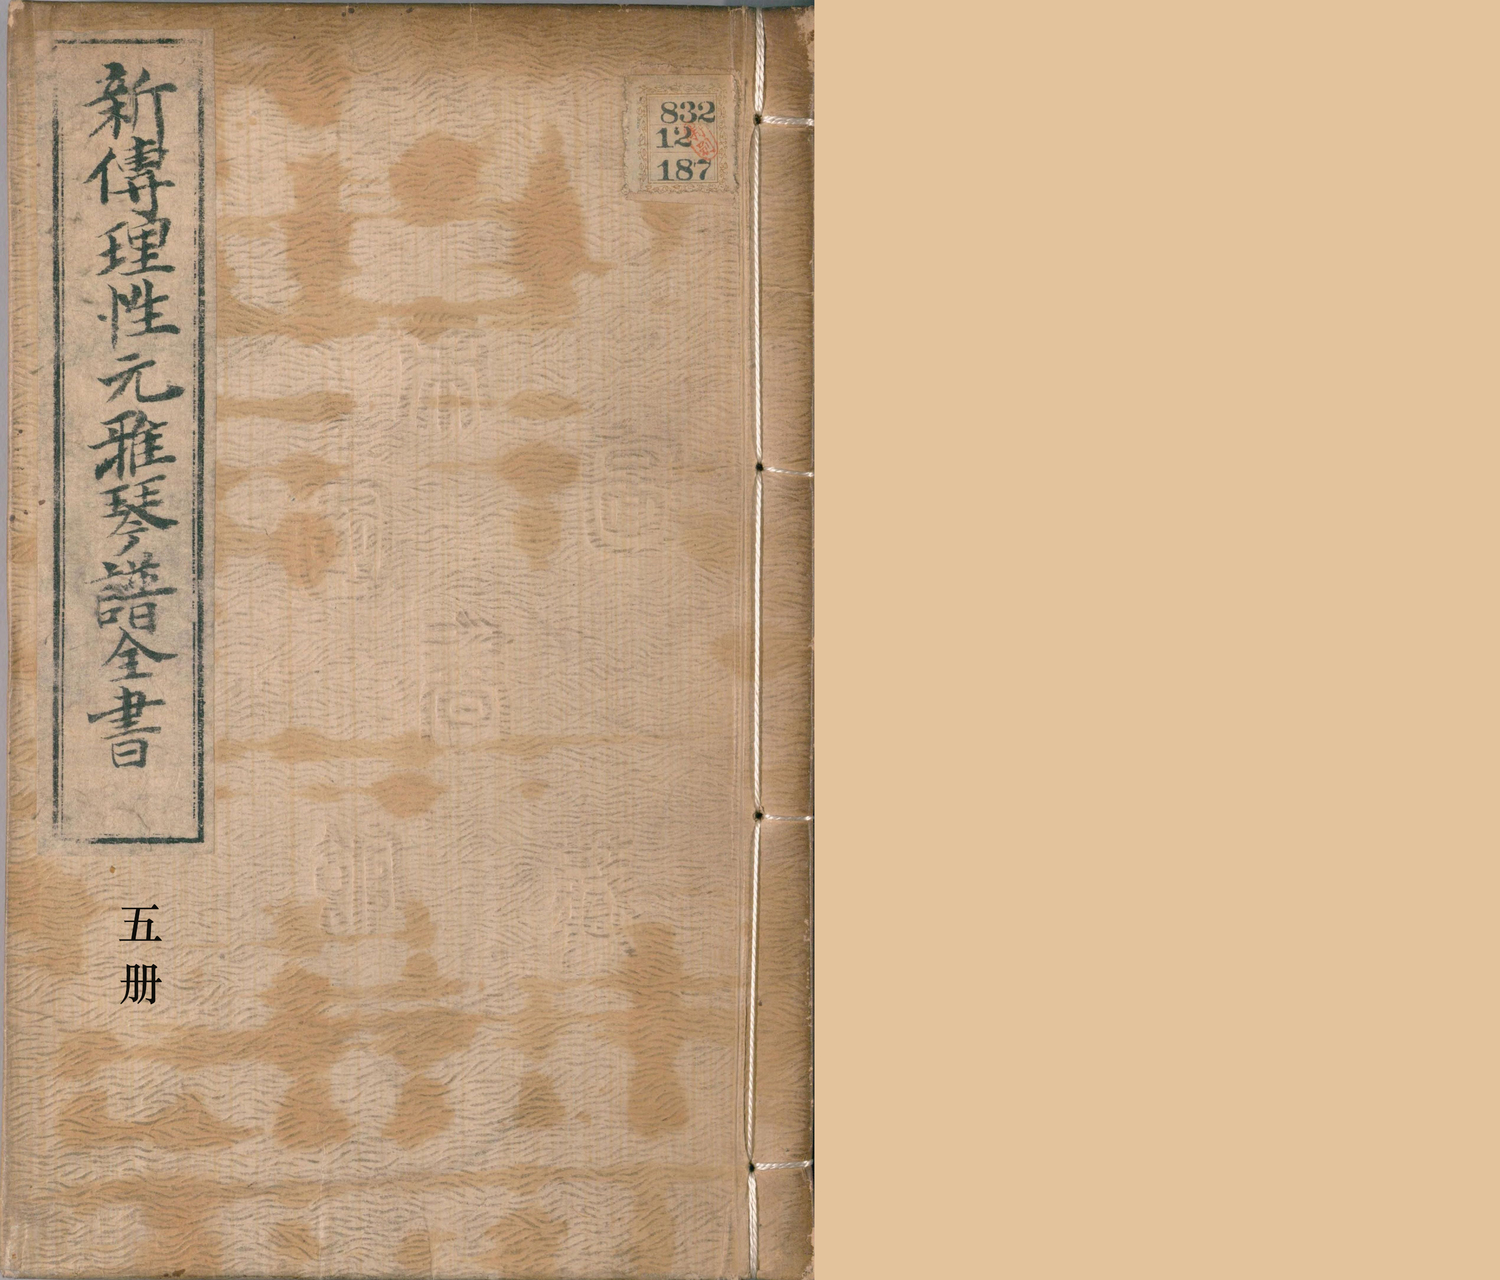 新傳理性元雅琴譜全書
五册
832
12
187